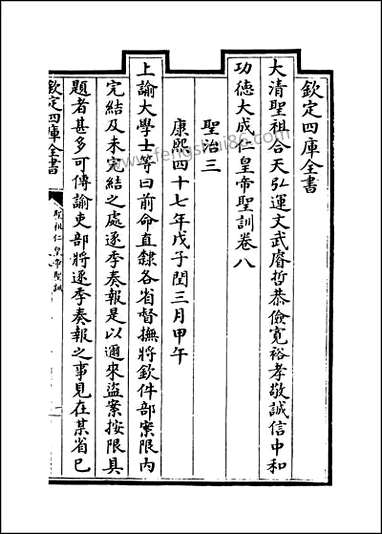 欽定四庫全書
大清聖祖合天弘運文武睿哲恭儉寬裕孝敬誠信中和
功德大成仁皇帝聖訓卷八
聖治三
康熙四十七年戊子閏三月甲午
上諭大學士等曰前命直隸各省督撫將欽件部案限內
完結及未完結之處逐季奏報是以邇來盜案按限具
題者甚多可傳諭吏部將逐季奏報之事見在某省已
欽定四庫全書
聖祖仁皇帝聖訓